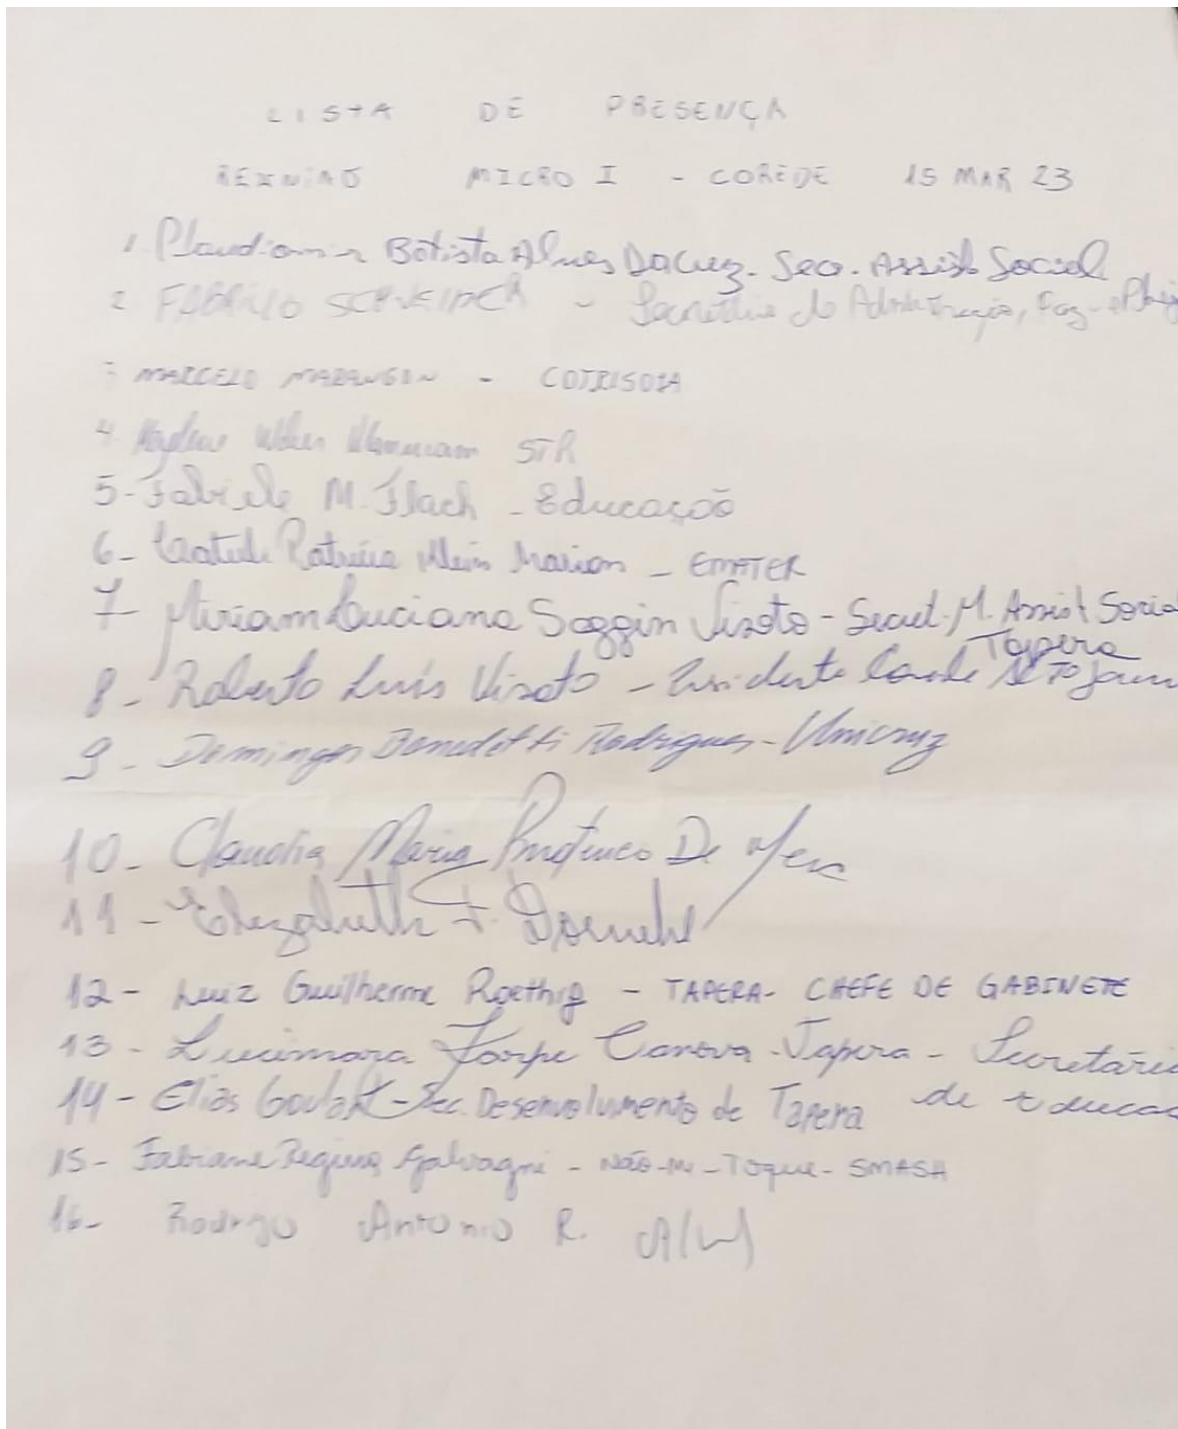 LISTA DE PRESENÇA
REUNIÃO MICRO I - COREDE 15 MAR 23
1. Batista Alves Da Cruz. Sec. Assist Social
2 FABRICIO SCHNEIDER - Secretário de Administração, Faz. e Planej
3 MARCELO MARANGON - COTRISOJA
4. STR
5- Fabiele M. Flach - Educação
6- Patrícia Klein Marion - EMATER
7- Miriam Luciana Soggin Vizoto - Secret. M. Assist Social
Tapera
8- Roberto Luís Vizoto - Presidente Corede
9- Domingos Benedetti Rodrigues - Unicruz
10- Claudia Maria De
11- Elizabeth F.
12- Luiz Guilherme Roethig - TAPERA- CHEFE DE GABINETE
13- Lucimara Canova - Tapera - Secretária
14- Elias Goulart - Sec. Desenvolvimento de Tapera de Educaç
15- Fabiane Regina Galvagni - Não-Me-Toque- SMASH
16- Rodrigo Antonio R.